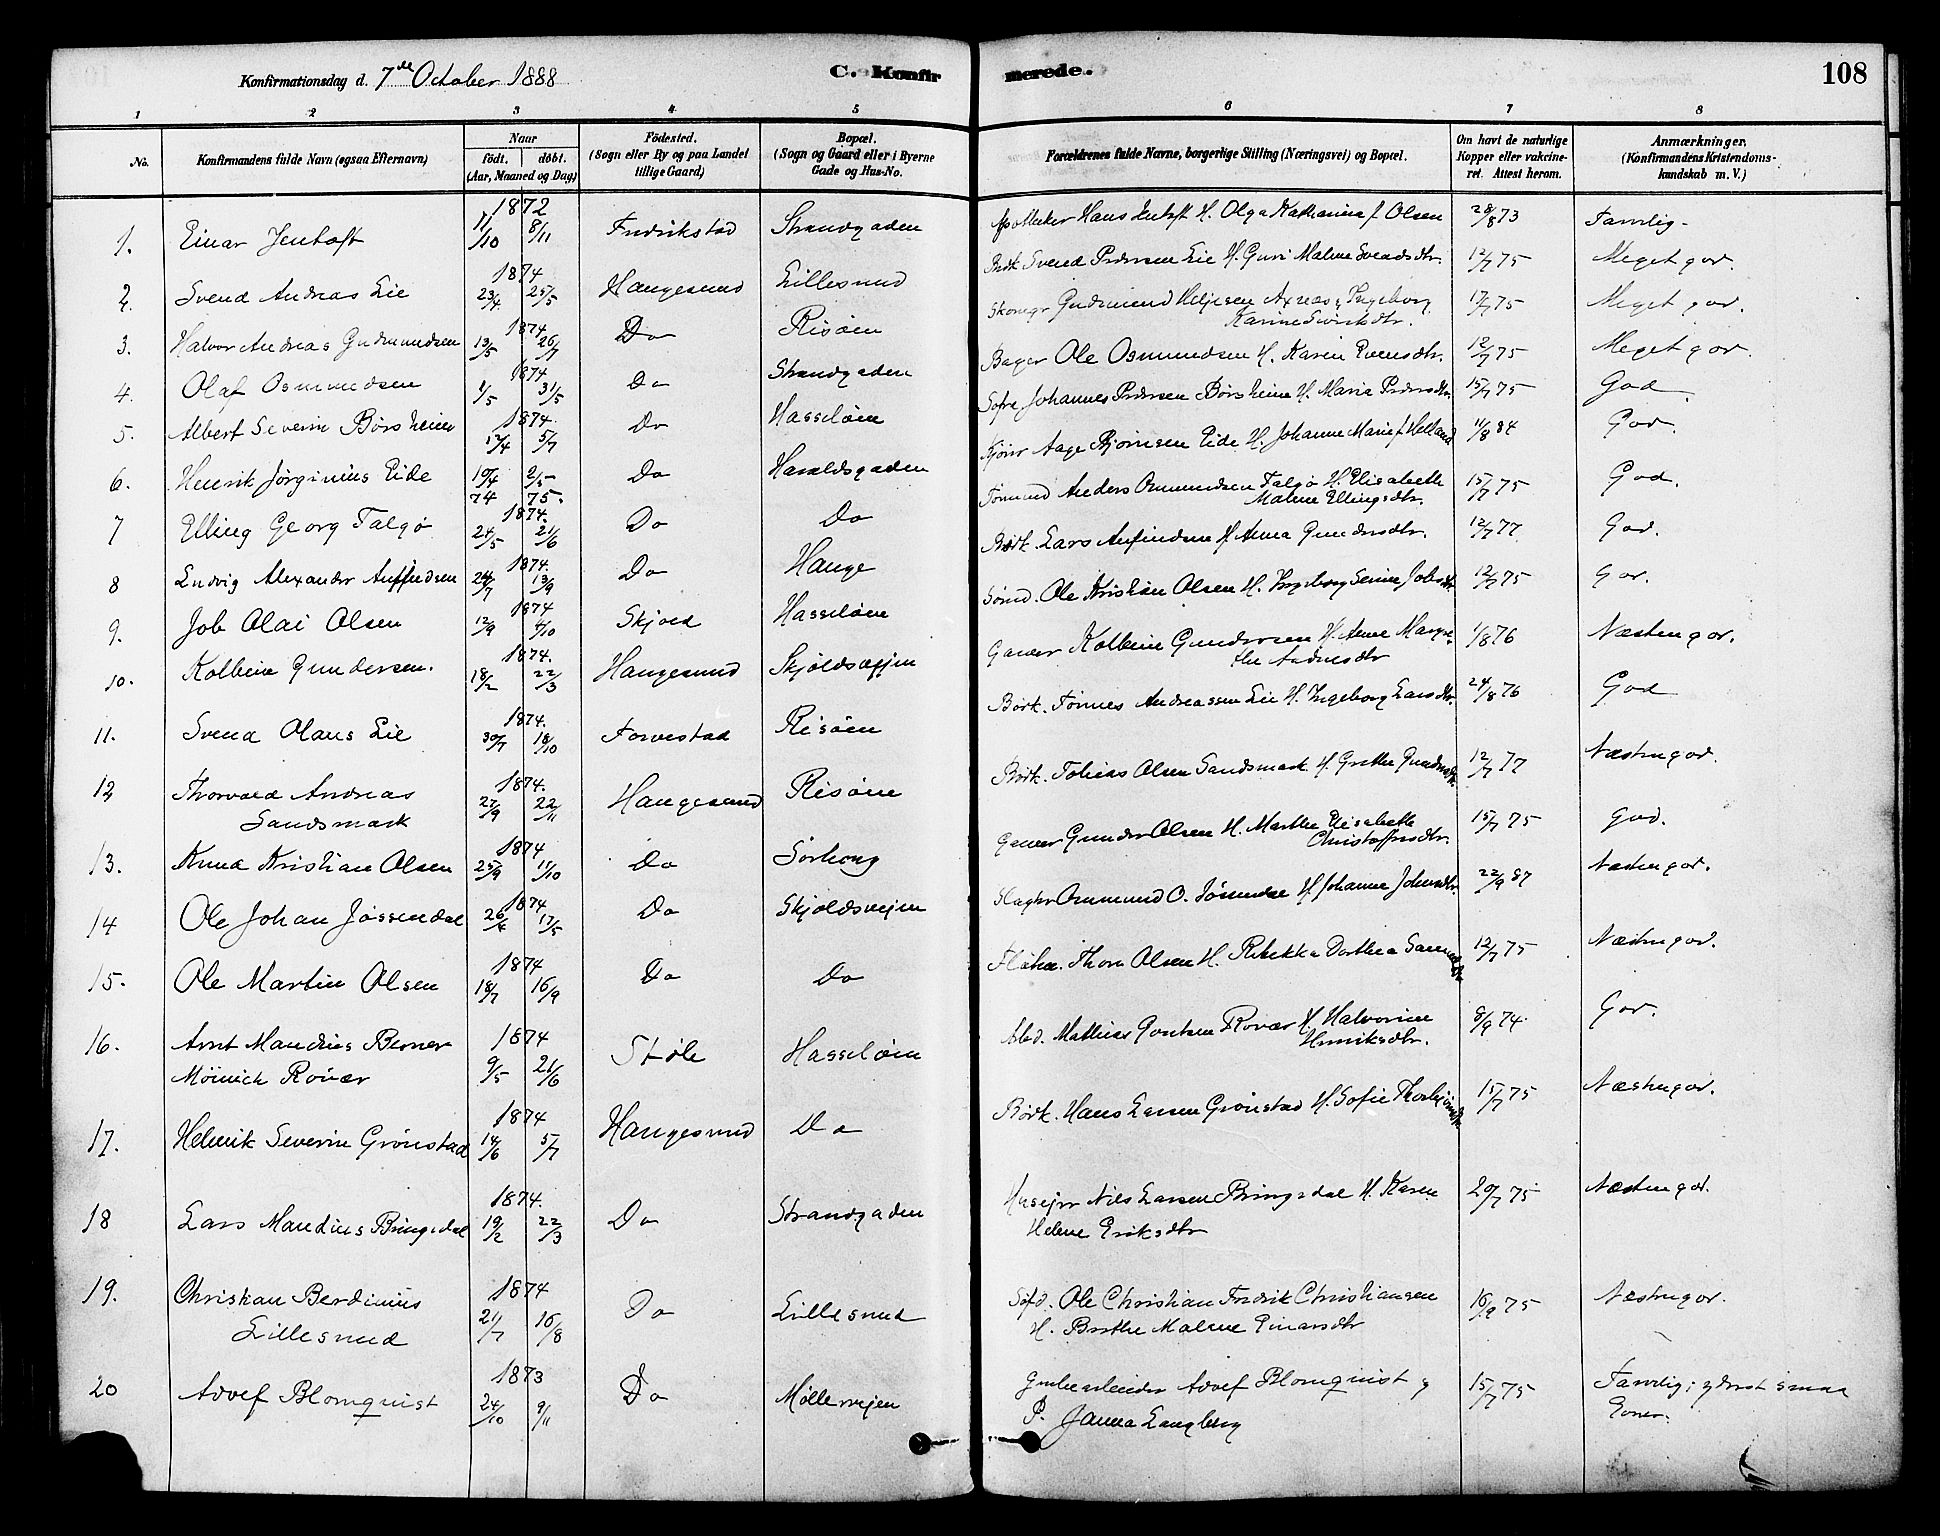 Konfirmationsdag d. 7de October 1888 C. Konfirmerede. 108
1 2 3 4 5 6 7 8
No. Konfirmandens fulde Navn (ogsaa Efternavn) Naar født. døbt. (Aar, Maaned og Dag) Fødested. (Sogn eller By og paa Landet tillige Gaard) Bopæl. (Sogn og Gaard eller i Byerne Gade og Hus-No. Forældrenes fulde Navne, borgerlige Stilling (Næringsvei) og Bopæl. Om havt de naturlige Kopper eller vakcineret. Attest herom. Anmærkninger. (Konfirmandens Kristendomskundskab m. V.)
1. Einar Jentoft 1872 11/10 8/11 Fredrikstad Strandgaden Apotheker Hans Jentoft H. Olga Katharina f. Olsen 28/8 73 Tarvelig
2. Svend Andreas Lie 1874 23/4 25/5 Haugesund Lillesund Svend Pedersen Lie H. Guri Malene Svendsdtr. 12/7 75 Meget god.
3. Halvor Andreas Gudmundsen 1874 13/5 26/7 Do Risøen Skomgr Gudmund Helgesen Ingeborg Karine 17/7 75 Meget god.
4. Olaf Osmundsen 1874 1/5 31/5 Do Strandgaden Bager Ole Osmundsen H. Karen 12/7 75 Meget god.
5. Albert Severin Børsheim 1874 17/4 5/7 Do Hasseløen Johannes Pedersen Børsheim H. Maria Pedersdtr. 15/7 75 God
6. Henrik Jørginius Eide 19/4 74 2/5 75 Do Haraldsgaden Aage Bjørnsen Eide H. Johanne Marie f. Helland 11/8 84 God.
7 Elling Georg Talgø 1874. 24/5 21/6 Do Do Tømmd Anders Ommundsen Talgø H. Elisabeth Malene Ellingsdtr. 15/7 75 God.
8 Ludvig Alexander Anfindsen 1874. 24/7 13/9 Do Hauge Lars Anfindsen H. Anna Gundersdtr. 12/7 77 God.
9. Job Olai Olsen 1874 12/9 4/10 Skjold Hasseløen Ole Kristian Olsen H. Ingeborg Serine Jobsdtr. 12/7 75 God.
10. Kolbein Gundersen. 1874. 18/2 22/3 Haugesund Skjoldsvejen Garver Kolbein Gundersen H. Anne Margrethe Andersdtr 1/8 76 Næsten god.
11. Svend Olaus Lie 1874. 30/7 18/10 Torvestad Risøen Bødk. Tønnes Andreassen Lie H. Ingeborg Larsdtr. 24/8 76 God
12 Thorvald Andreas Sandsmark 1874. 27/9 22/11 Haugesund Risøen Bødk. Tobias Olsen Sandsmark H. Grethe 12/7 77 Næsten god.
13. Knud Kristian Olsen 1874 25/9 15/10 Do Sørhoug Garver Gunder Olsen H. Marthe Elisabeth Christoffersdtr. 15/7 75 God.
14 Ole Johan Jøssendal 1874 26/4 17/5 Do Skjoldsvejen Slagter Ommund O. Jøssendal H. Johanne Johnsdtr. 22/9 87 Næsten god.
15. Ole Martin Olsen 1874 18/7 16/9 Do Do Thore Olsen H. Rebekka Dorthea 12/7 75 Næsten god.
16. Arnt Maudius Berner Møinich Rovær 1874 9/5 21/6 Støle Hasseløen Arbd. Mathias Rovær H. Halvorine Henriksdtr. 8/9 74. God.
17. Helmik Severin Grønstad 1874 14/6 5/7 Haugesund Do Bødk. Hans Larsen Grønstad H. Sofie 15/7 75 Næsten god.
18 Lars Maudius Bringedal 1874. 19/2 22/3 Do Strandgaden Husejer Nils Larsen Bringedal H. Karen Helene Eriksdtr 20/7 75 Næsten god.
19. Christian Berdinius Lillesund 1874 21/7 16/8 Do Lillesund Søfd. Ole Christian Fredrik Christiansen H. Berthe Malene Einarsdtr 16/9 75 Næsten god.
20 Advef Blomquist 1873 24/10 9/11 Do Møllervejen Grubearbeider Advef Blomquist og P. Janna Langberg 15/7 75 Tarvelig; yderst smaa Evner.